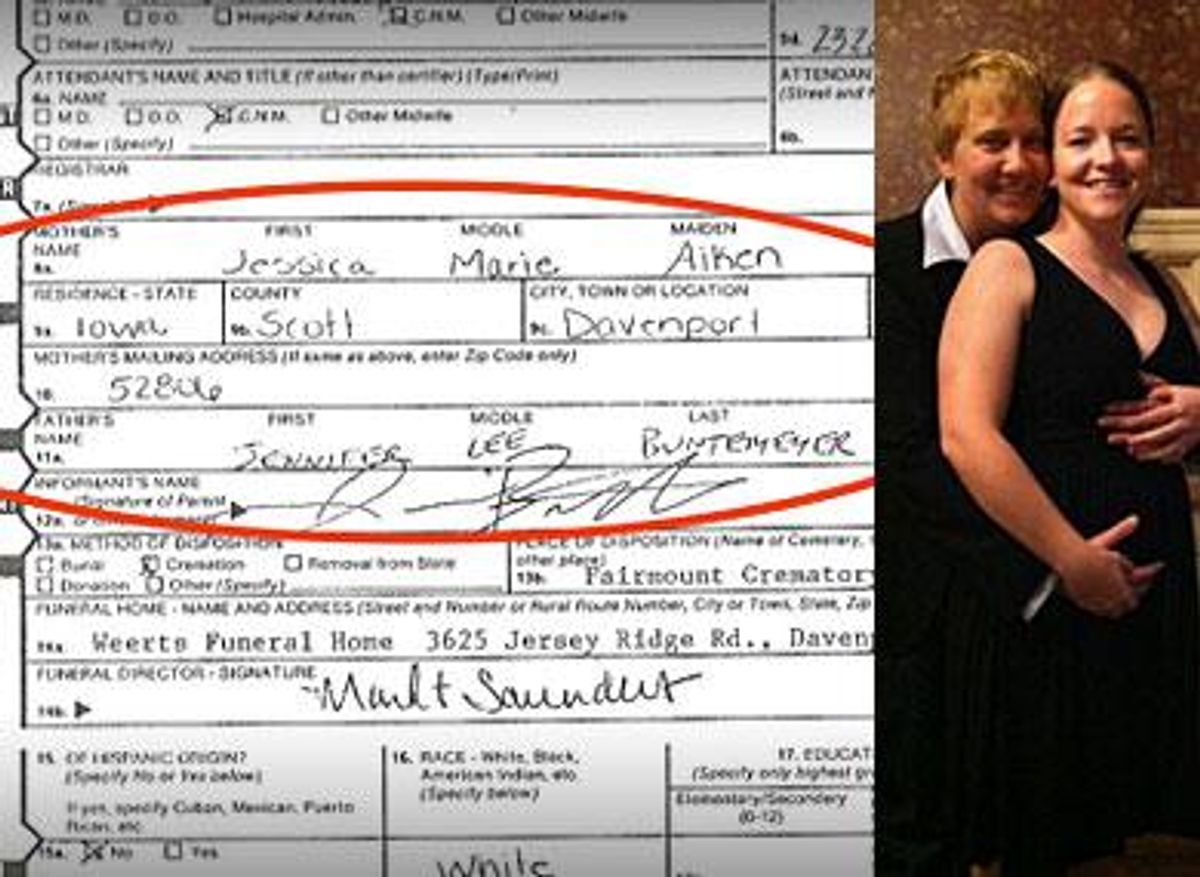 ☐ M.D. ☐ D.O. ☐ Hospital Admin. ☒ C.N.M. ☐ Other Midwife
☐ Other (Specify)
ATTENDANT'S NAME AND TITLE (If other than certifier) (Type/Print)
ATTENDAN
(Street and
6a. NAME
☐ M.D. ☐ D.O. ☒ C.N.M. ☐ Other Midwife
☐ Other (Specify)
6b.
REGISTRAR
7a.
MOTHER'S NAME FIRST MIDDLE MAIDEN
8a. Jessica Marie Aiken
RESIDENCE - STATE COUNTY CITY, TOWN OR LOCATION
9a. Iowa 9b. Scott 9c. Davenport
MOTHER'S MAILING ADDRESS (If same as above, enter Zip Code only)
10. 52806
FATHER'S NAME FIRST MIDDLE LAST
11a. JENNIFER LEE BUNTEMEYER
INFORMANT'S NAME
(Signature of Parent
12a.
13a. METHOD OF DISPOSITION
PLACE OF DISPOSITION (Name of Cemetery,
other place)
☐ Burial ☒ Cremation ☐ Removal from State
☐ Donation ☐ Other (Specify)
13b. Fairmount Cremator
FUNERAL HOME - NAME AND ADDRESS (Street and Number or Rural Route Number, City or Town, State, Zip
14a. Weerts Funeral Home 3625 Jersey Ridge Rd., Daven
FUNERAL DIRECTOR - SIGNATURE
14b.
15. OF HISPANIC ORIGIN?
(Specify No or Yes below)
If yes, specify Cuban, Mexican, Puerto
Rican, etc.
15a. ☒ No ☐ Yes
16. RACE - White, Black,
American Indian, etc.
(Specify below)
White
17. EDUCAT
(Specify only highest gr
Elementary/Secondary
(0-12)